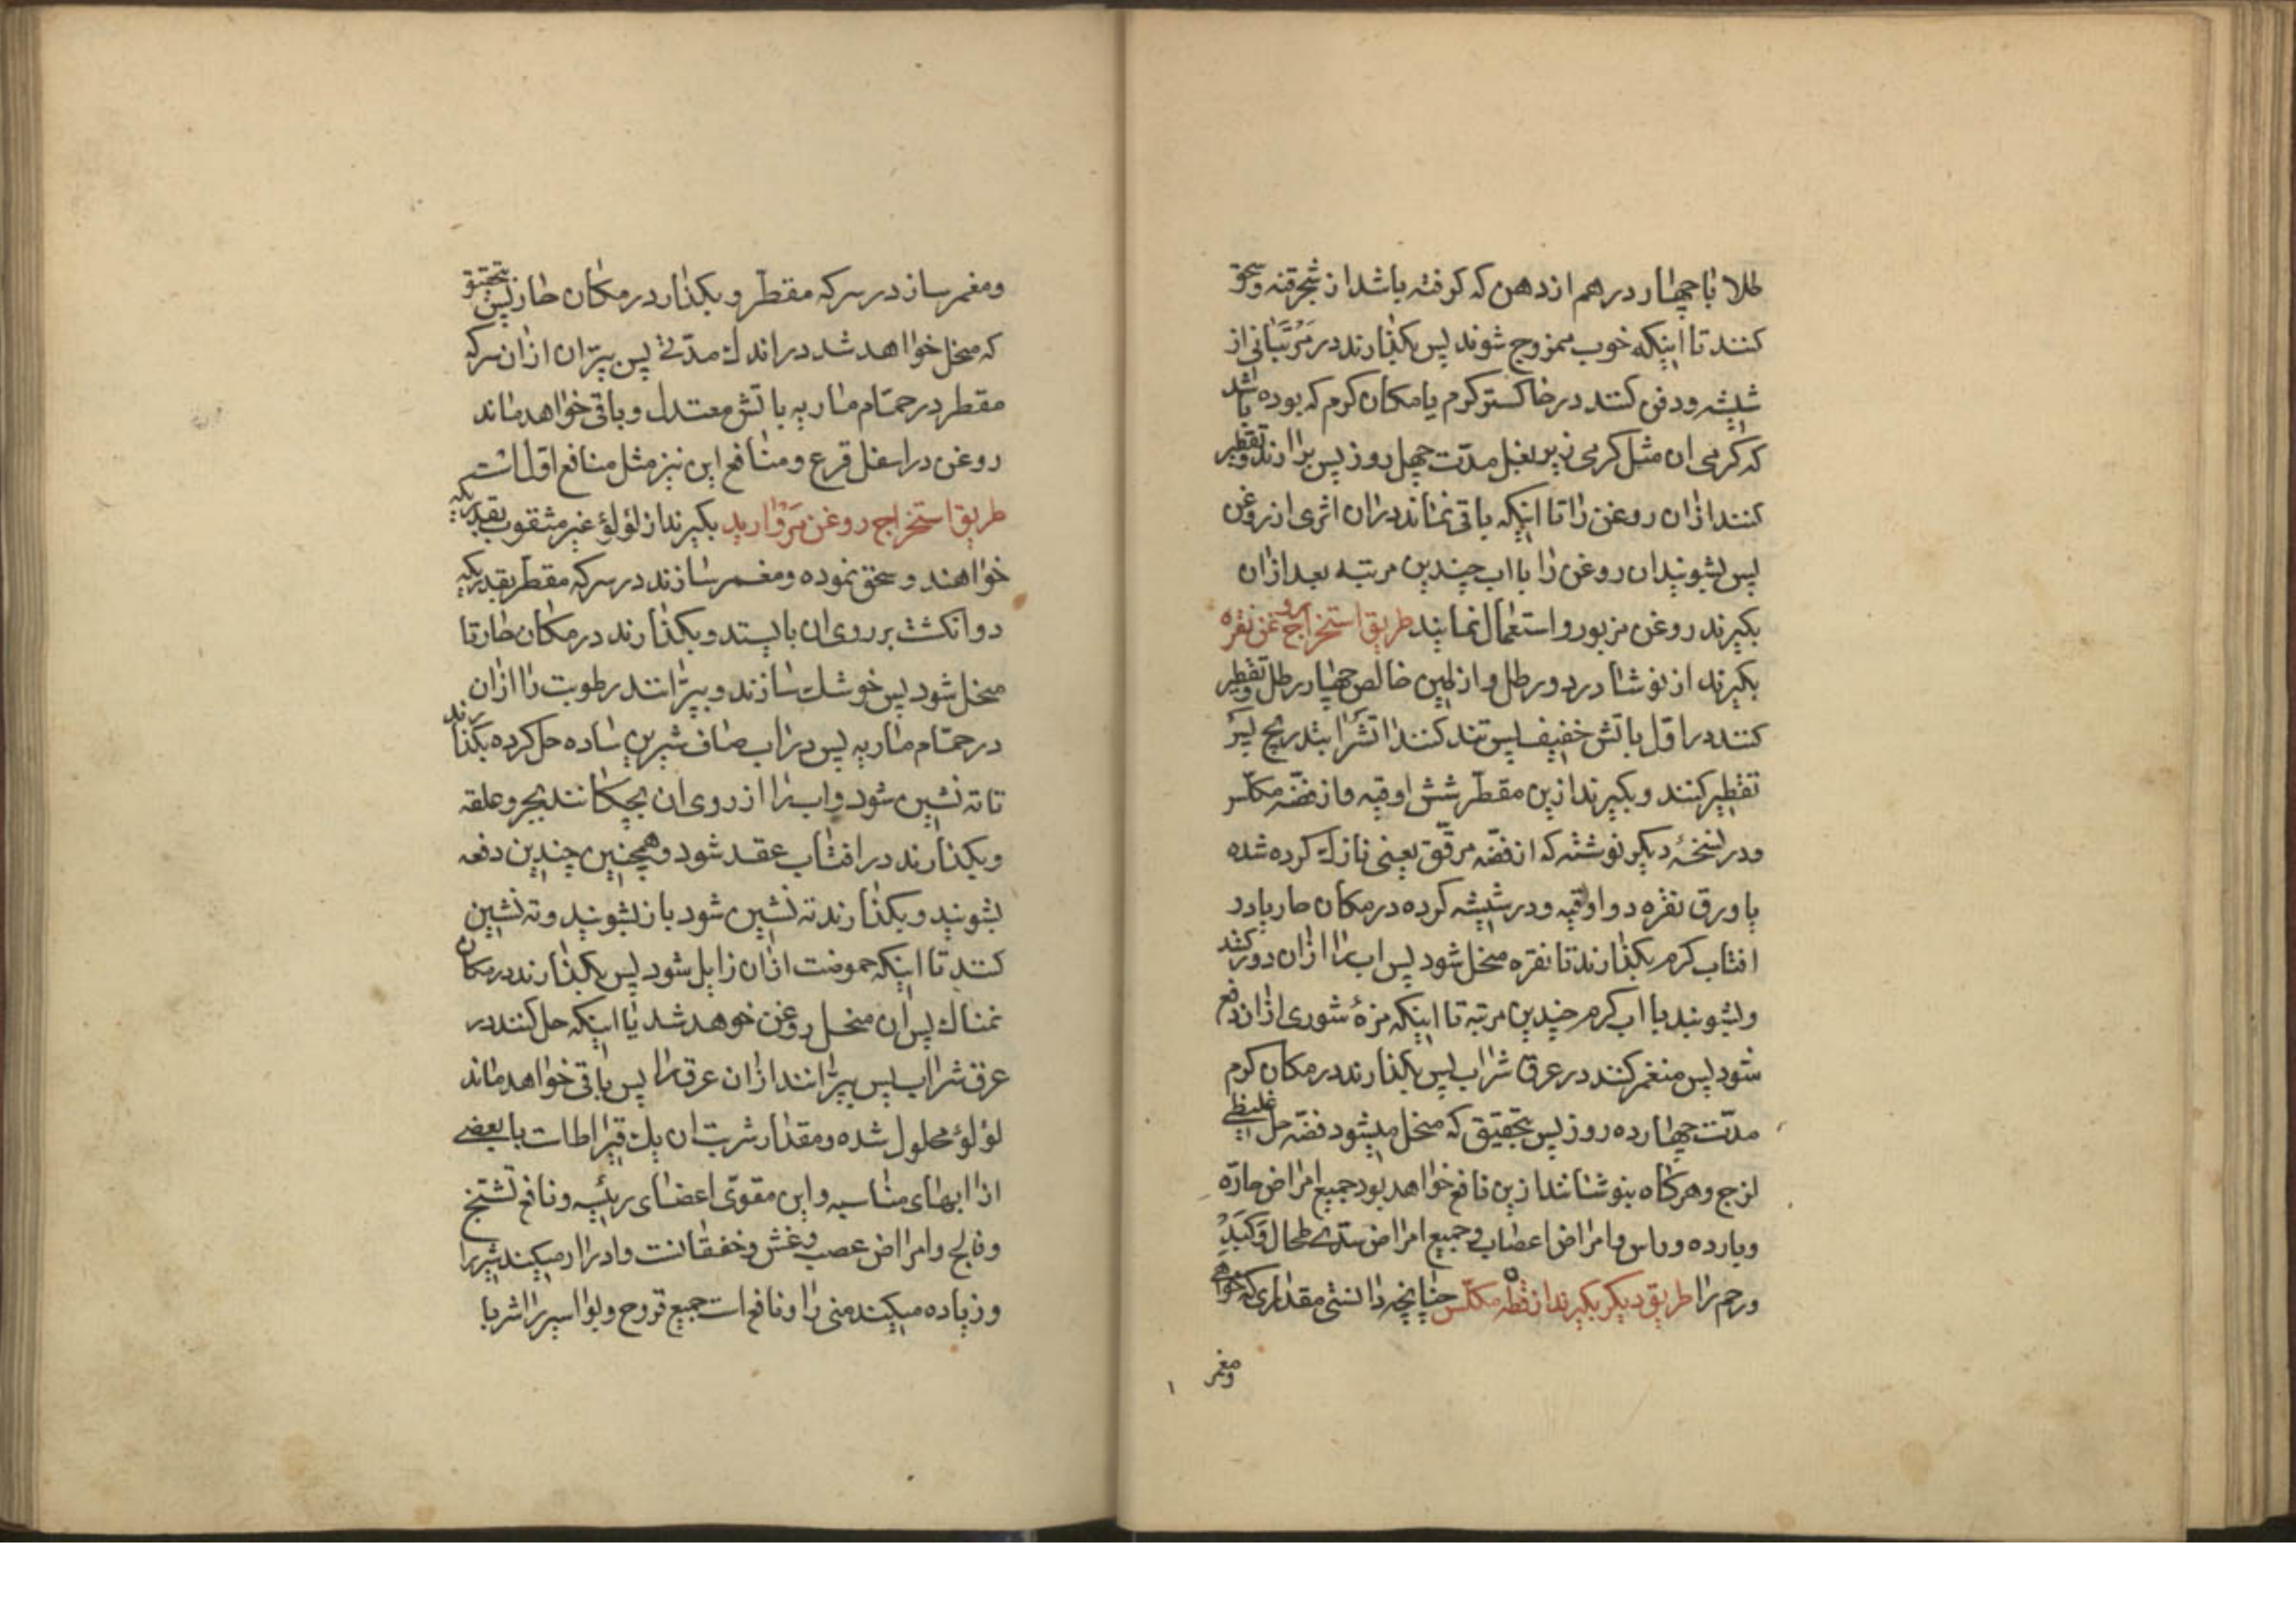 طلا با چهار درهم از دهن که کرفته باشد از شجرقنه وسحق
کنند تا اینکه خوب ممزوج شوند پس بکذارند در مَرْتَبانی از
شیشه ودفن کنند در خاکستر کرم یا مکان کرم که بوده باشد
که کرمی ان مثل کرمی زیر بغل مدّت چهل روز پس برارند وتقطیر
کنند ازان روغن را تا اینکه باقی نماند دران اثری از روغن
پس بشویند ان روغن را با اب چندین مرتبه بعد ازان
بکیرند روغن مزبور و استعمال نمایند طریق استخراج روغن نقره
بکیرند از نوشادر دو رطل و از لمین خالص چهار رطل وتقطیر
کنند در اوّل باتش خفیف پس تند کنند اتش را بتدریج پس
تقطیر کنند و بکیرند ازین مقطّر شش اوقیه و از فضّه مکلّس
ودر نسخهٔ دیکر نوشته که از فضّه مرقّق یعنی نازک کرده شده
یا ورق نقره دو اوقیه و در شیشه کرده در مکان حار یا در
افتاب کرم بکذارند تا نقره منحل شود پس اب را ازان دور کنند
وبشویند با اب کرم چندین مرتبه تا اینکه مزهٔ شوری ازان دفع
شود پس منغمر کنند در عرق شراب پس بکذارند در مکان کرم
مدّت چهارده روز پس بتحقیق که منحل میشود فضّه حل غلیظی
لزج وهرکاه بنوشانند ازین نافع خواهد بود جمیع امراض حارّه
وبارده وراس و امراض اعصاب وجمیع امراض سدّی طحال وَکَبَدِ
ورحم را طریق دیکر بکیرند از فضّه مکلّس چنانچه دانستی مقداری که خواهی
ومغمر
ومغمر ساز در سرکه مقطّر و بکذار در مکان حار پس بتحقیق
که منحل خواهد شد در اندک مدّتی پس بپرّان ازان سرکه
مقطر در حمّام ماریه باتش معتدل و باقی خواهد ماند
روغن در اسفل قرع و منافع این نیز مثل منافع اوّل است
طریق استخراج روغن مَرْوارید بکیرند از لؤلؤ غیر مثقوب بقدریکه
خواهند و سحق نموده و مغمر سازند در سرکه مقطّر بقدریکه
دو انکشت بر روی ان بایستد و بکذارند در مکان حار تا
منحل شود پس خوشک سازند و بپرّانند رطوبت را ازان
در حمّام ماریه پس در اب صاف شیرین ساده حل کرده بکذارند
تا ته نشین شود و اب را از روی ان بچکانند بجر و علقه
وبکذارند در افتاب عقد شود وهمچنین چندین دفعه
بشویند و بکذارند ته نشین شود باز بشویند و ته نشین
کنند تا اینکه حموضت ازان زایل شود پس بکذارند در مکان
نمناک پس ان منحل روغن خوهد شد یا اینکه حل کنند در
عرق شراب پس بپرّانند ازان عرق را پس باقی خواهد ماند
لؤلؤ محلول شده ومقدار شربت ان یک قیراطات با بعضی
از ابهای مناسبه واین مقوّی اعضای رئیسه و نافع تشنّج
وفالج و امراض عصب وغش وخفقانت و ادرار میکند شیر را
وزیاده میکند منی را و نافع است جمیع قروح وبواسیر را شربا